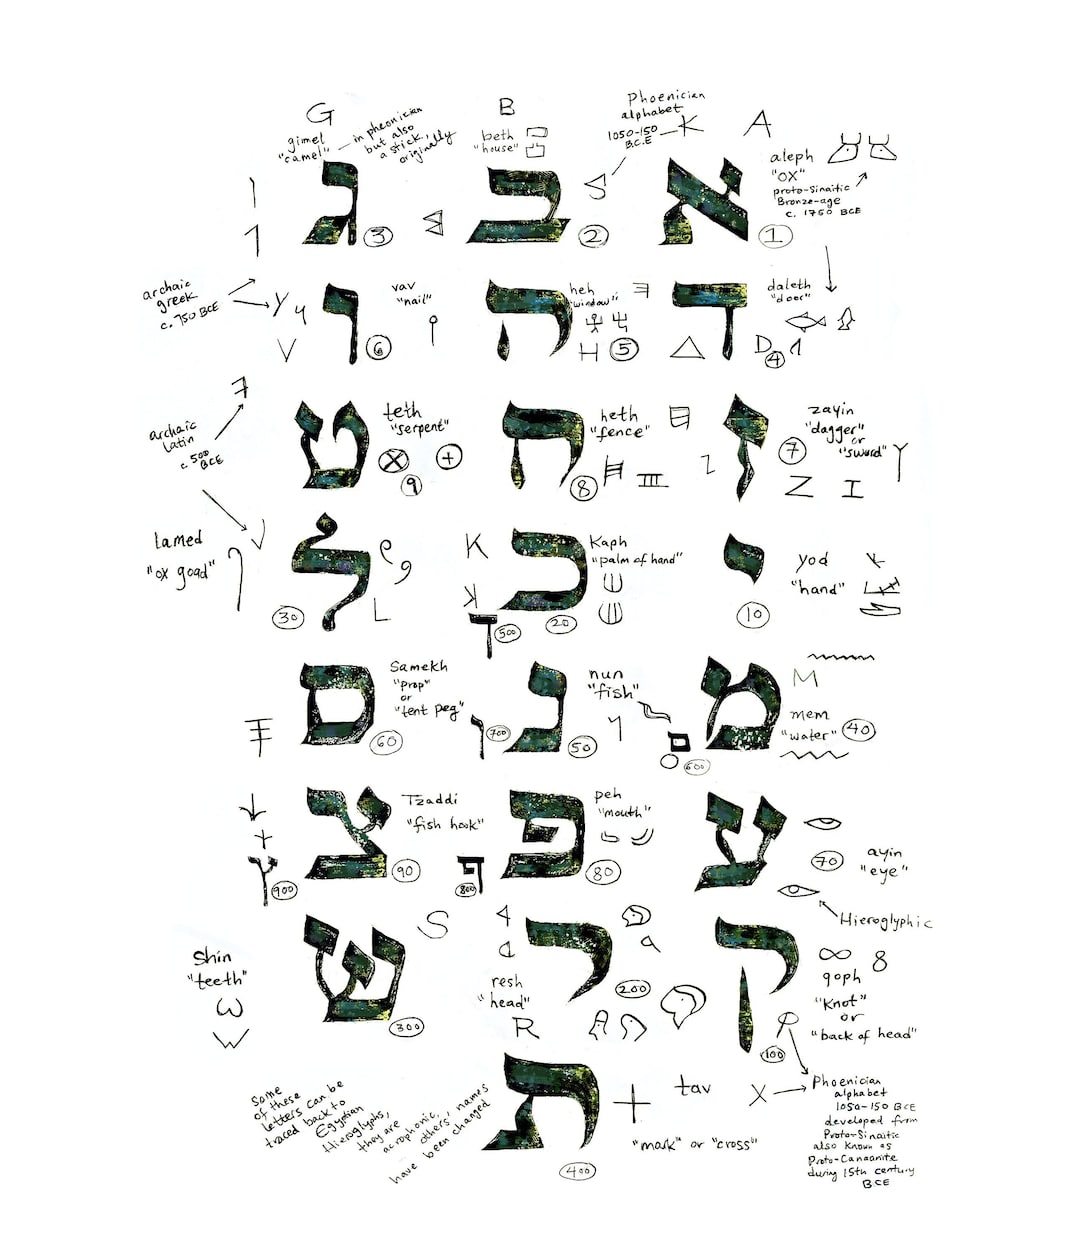 G
gimel
"camel"
in pheonician
but also
a stick,
originally
ג
3
B
beth
"house"
ב
2
Phoenician
alphabet
1050-150
B.C.E
K
A
aleph
"OX"
proto-Sinaitic
Bronze-age
c. 1750 BCE
א
1
archaic
greek
c. 750 BCE
Y
V
vav
"nail"
ו
6
heh
"window"
ה
H
5
daleth
"door"
ד
D
4
archaic
Latin
c. 500
BCE
teth
"serpent"
ט
9
heth
"fence"
ח
8
zayin
"dagger"
or
"sword"
ז
7
Z
I
lamed
"ox goad"
ל
L
30
K
Kaph
"palm of hand"
כ
20
ך
500
yod
"hand"
י
10
Samekh
"prop"
or
"tent peg"
ס
60
nun
"fish"
נ
50
ן
700
M
mem
"water"
מ
40
ם
600
Tzaddi
"fish hook"
צ
90
ץ
900
peh
"mouth"
פ
80
ף
800
ע
70
ayin
"eye"
Hieroglyphic
Shin
"teeth"
S
ש
300
resh
"head"
ר
R
200
ק
qoph
"Knot"
or
"back of head"
100
Some
of these
letters can be
traced back to
Egyptian
Hieroglyphs,
they are
acrophonic,
others, names
have been changed
ת
tav
"mark" or "cross"
400
X
Phoenician
alphabet
1050-150 BCE
developed from
Proto-Sinaitic
also known as
Proto-Canaanite
during 15th century
BCE